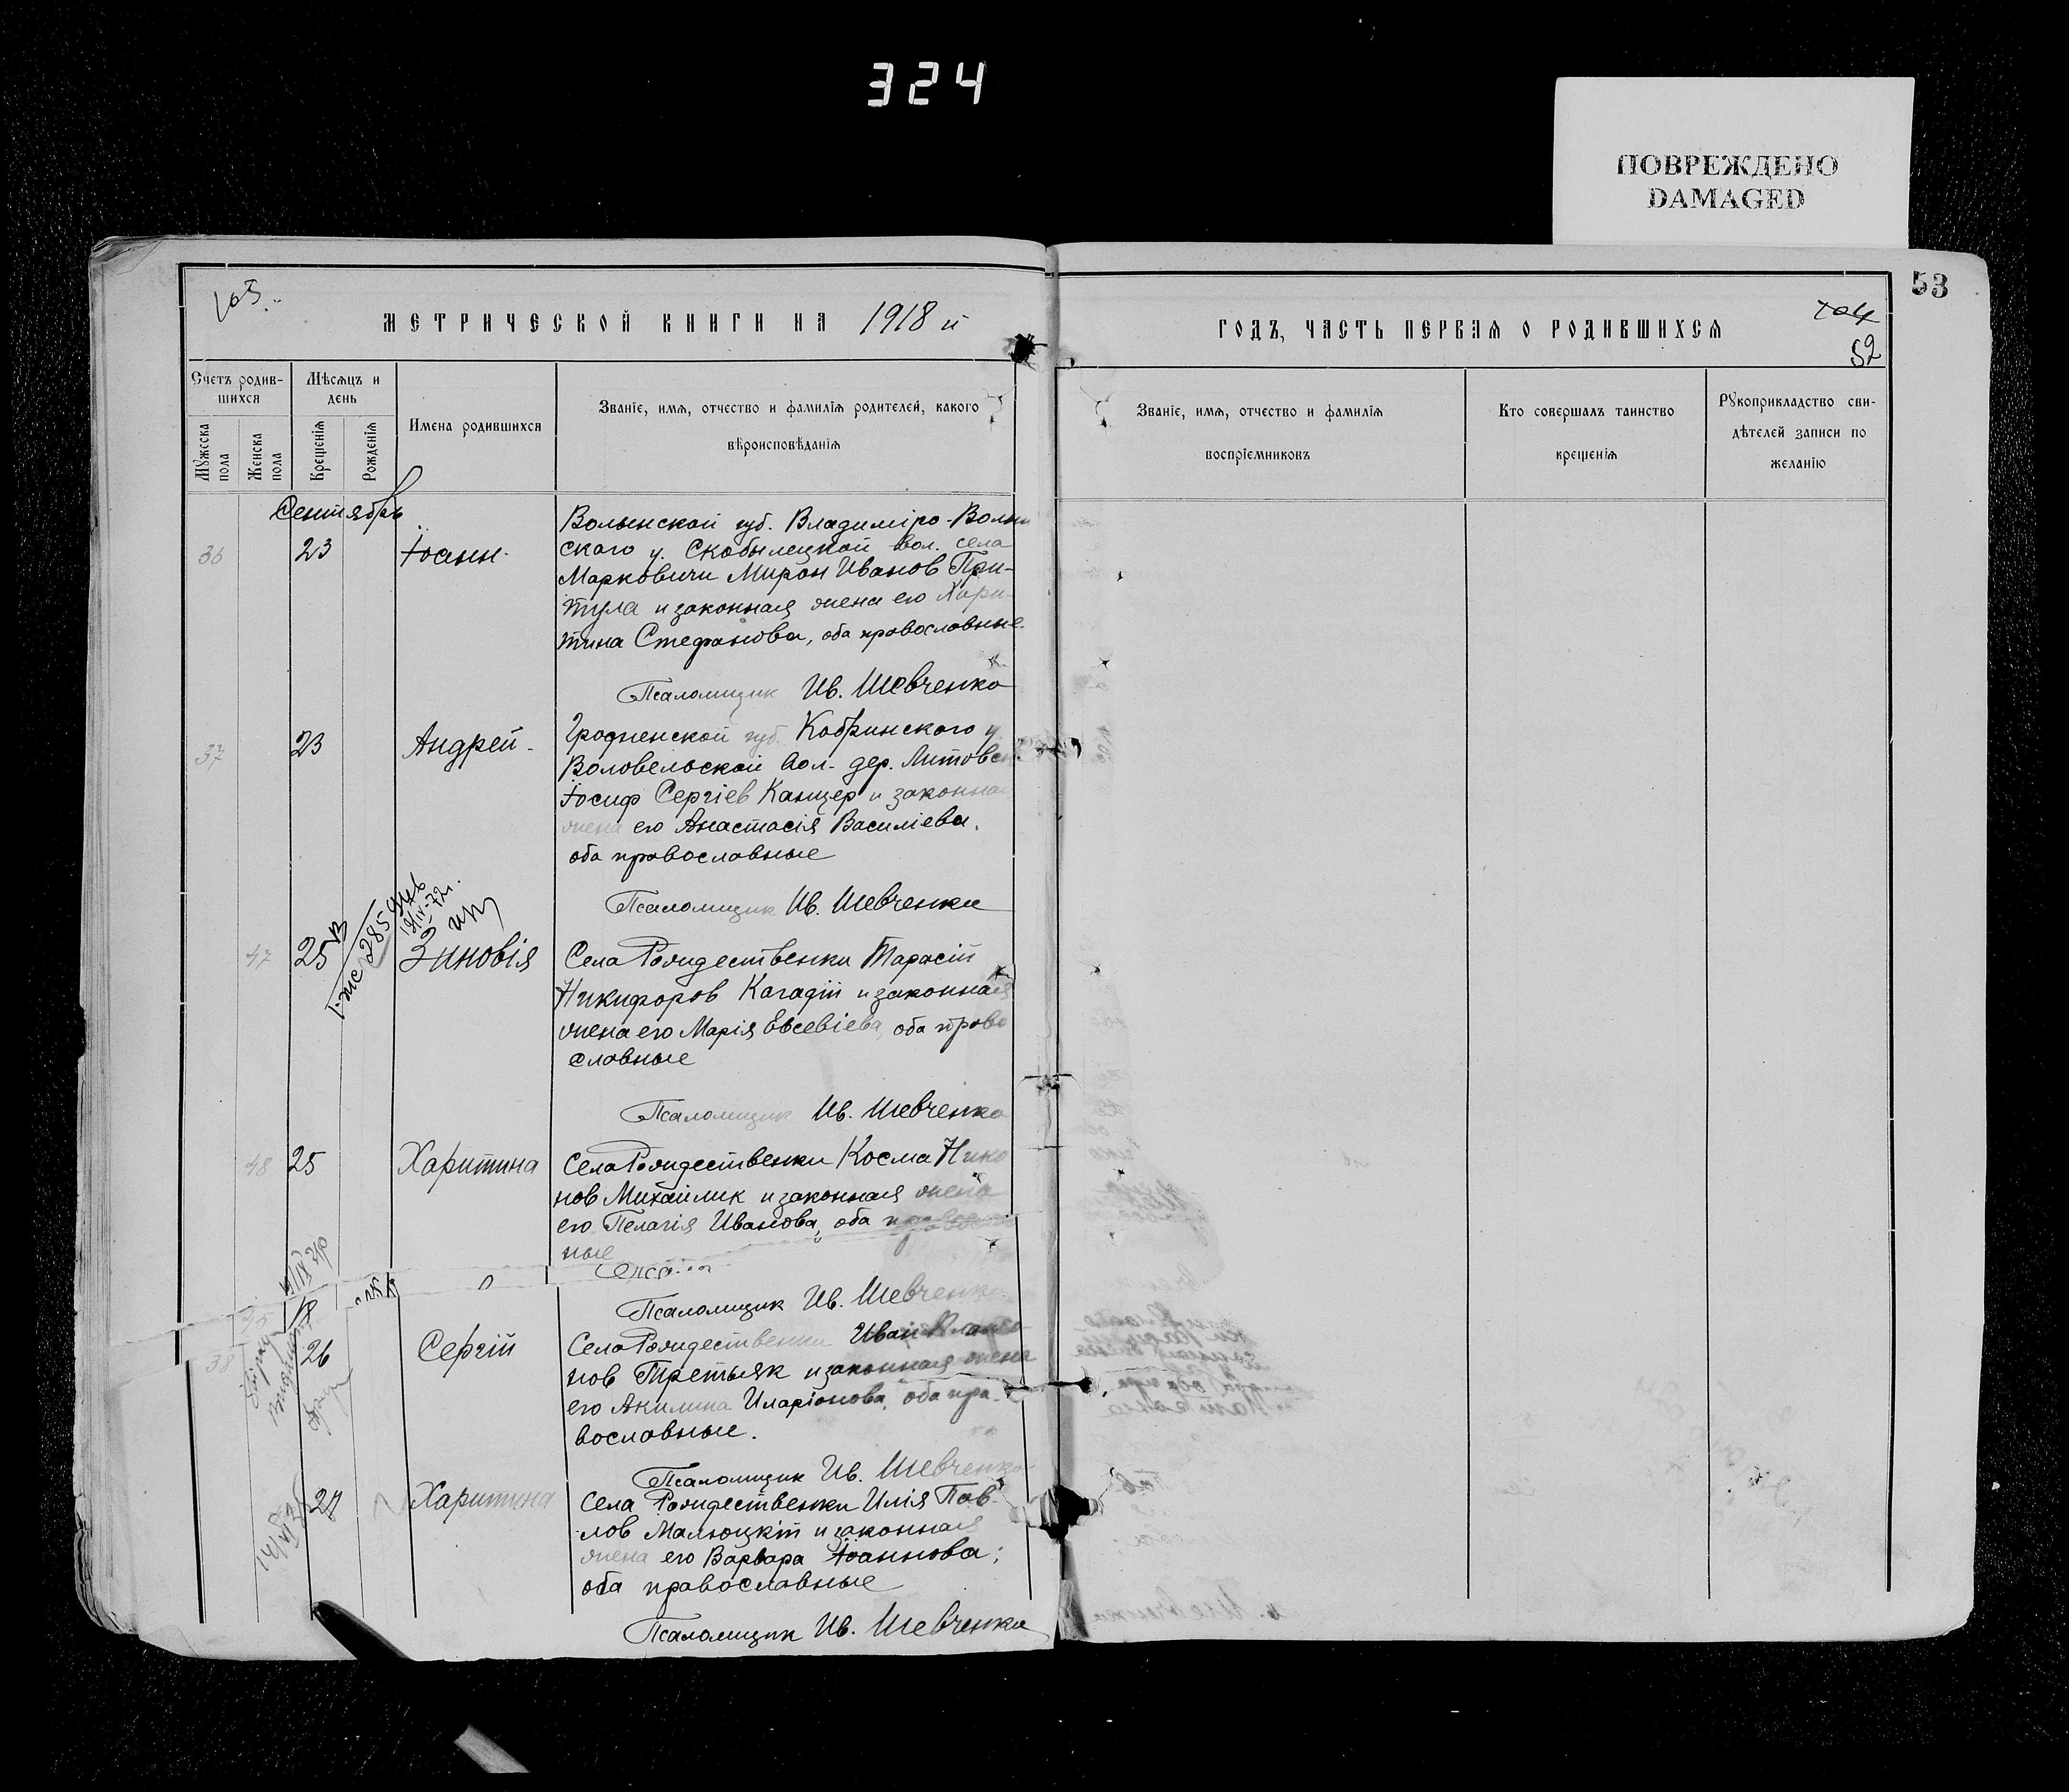 324
ПОВРЕЖДЕНО
DAMAGED
53
105.
МЕТРИЧЕСКОЙ КНИГИ НА 1918 й
ГОДЪ, ЧАСТЬ ПЕРВАЯ О РОДИВШИХСЯ
104
52
Счетъ родив-
шихся
Мѣсяцъ и
день
Имена родившихся
Званіе, имя, отчество и фамилія родителей, какого
вѣроисповѣданія
Мужеска
пола
Женска
пола
Крещенія
Рожденія
Званіе, имя, отчество и фамилія
воспріемниковъ
Кто совершалъ таинство
крещенія
Рукоприкладство сви-
дѣтелей записи по
желанію
Сентябрь
36 23 Іоанн.
Волынской губ. Владиміро-Волын
ского у. Скобылецкой вол. села
Марковичи Мирон Иванов При-
тула и законная жена его Хари-
тина Стефанова, оба православные.
Псаломщик Ив. Шевченко
37 23 Андрей.
Гродненской губ. Кобринского у.
Воловельской вол. дер. Литовск
Іосиф Сергіев Канцер и законная
жена его Анастасія Василіева,
оба православные
Псаломщик Ив. Шевченко
19/IV-72г.
47 25 Зиновія
Села Рождественки Тарасій
Никифоров Кагадій и законная
жена его Марія Евсевіева, оба право
славные
Псаломщик Ив. Шевченко
48 25 Харитина
Села Рождественки Косма Нико
нов Михайлик и законная жена
его Пелагія Иванова, оба правос
ные
Псаломщик Ив. Шевченко
38 26 Сергій
Села Рождественки Иван
нов Третьяк и законная жена
его Акилина Иларіонова, оба пра-
вославные.
Псаломщик Ив. Шевченко
27 Харитина
Села Рождественки Илія Пав-
лов Малюцкій и законная
жена его Варвара Іоаннова;
оба православные
Псаломщик Ив. Шевченко